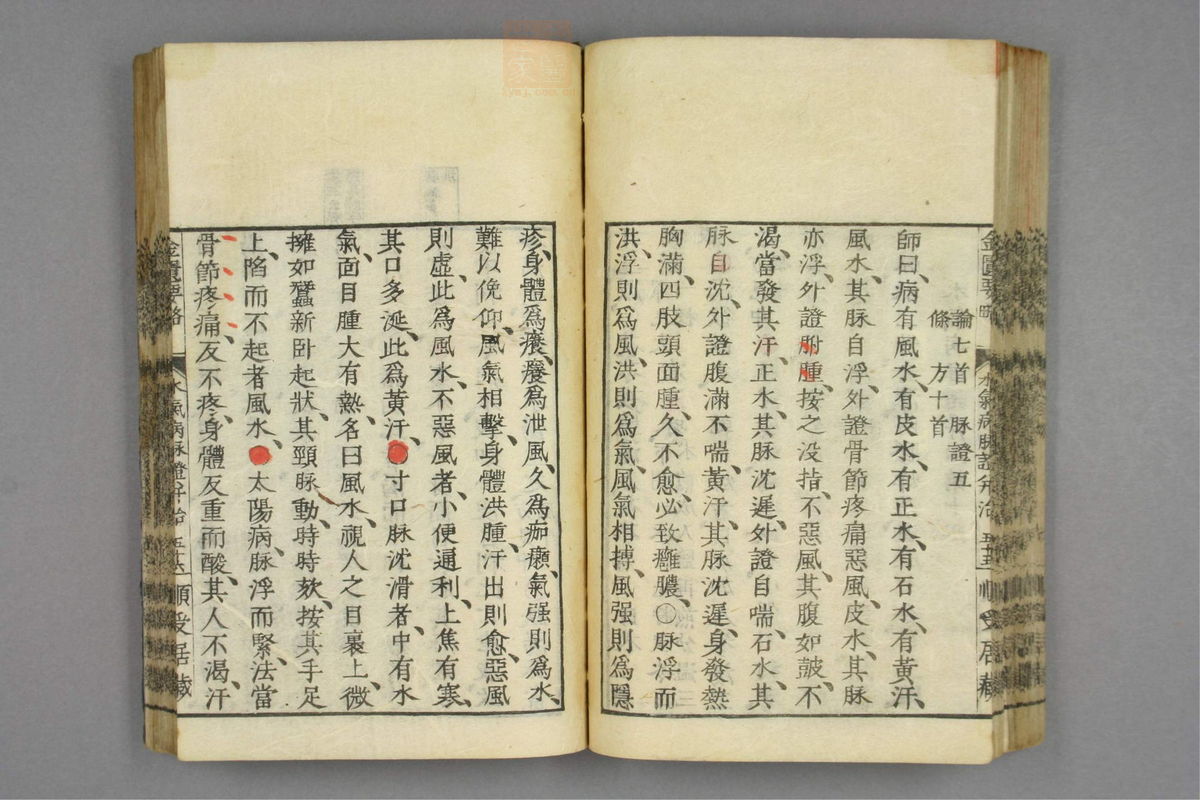 論七首 脉證五
條 方十首
師曰、病有風水、有皮水、有正水、有石水、有黃汗、
風水、其脉自浮、外證骨節疼痛惡風、皮水、其脉
亦浮、外證胕腫、按之没指、不惡風、其腹如皷、不
渴、當發其汗、正水、其脉沈遲、外證自喘、石水、其
脉自沈、外證腹滿不喘、黃汗、其脉沈遲、身發熱
胸滿、四肢頭面腫、久不愈、必致癰膿、○脉浮而
洪、浮則爲風、洪則爲氣、風氣相搏、風强則爲隱
疹、身體爲癢、癢爲泄風、久爲痂癩、氣强則爲水、
難以俛仰、風氣相擊、身體洪腫、汗出則愈、惡風
則虛、此爲風水、不惡風者、小便通利、上焦有寒、
其口多涎、此爲黃汗、寸口脉沈滑者、中有水
氣、面目腫大有熱、名曰風水、視人之目裹上、微
擁如蠶新卧起狀、其頸脉動、時時欬、按其手足
上、陷而不起者風水、太陽病、脉浮而緊、法當
骨節疼痛、反不疼、身體反重而酸、其人不渴、汗
金匱要略 水氣病脉證并治 五十六 順受居藏